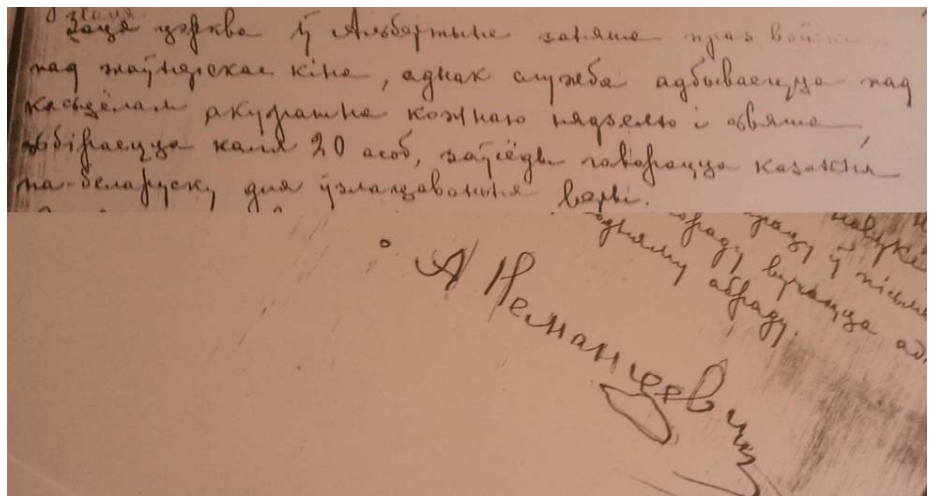 Наша царква ў Альбертыне занята праз войска
пад жаўнерскае кіно, аднак служба адбываецца пад
касьцёлам акуратна кожную нядзелю і свята
збіраецца каля 20 асоб, заўсёды говорацца казаньня
па-беларуску для ўзгадаваньня веры.
навукі
ў пісьме
абраду вучацца ад
абраду.
А Неманцевіч